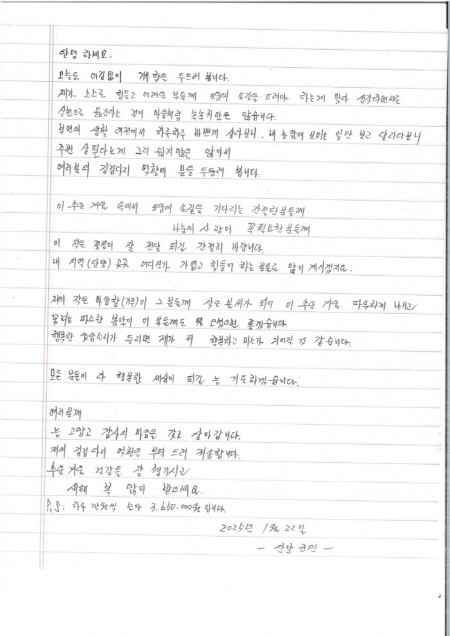 안녕 하세요.
오늘도 어김없이 기부함을 두드려 봅니다.
제가 스스로 힘들고 어려운 분들께 도움의 손길을 드려야 하는게 맞다 생각하면서도
실천으로 옮긴다는 것이 마음처럼 녹녹치만은 않습니다.
본연의 생활 여건에서 하루하루 바쁘게 살다보니, 내 눈앞에 보이는 일만 보고 달리다보니
주변 살핀다는게 그리 쉽지만은 않아서
여러분의 징검다리 역할에 문을 두들겨 봅니다.
이 추운 겨울 속에서 도움의 손길을 기다리는 간절한분들께
나눔의 사랑이 꼭필요한분들께
이 작은 정성이 잘 전달 되길 간절히 바랍니다.
내 지역(단양) 곳곳 어디선가 가렵고 힘들어 하는 분들도 많이 계시겠지요.
저의 작은 마음함(기부)이 그 분들께 작은 불씨가 되어 이 추운 겨울 따뜻하게 내내고
다가오는 따스한 봄날이 이 분들께도 꼭 오셨으면 좋겠습니다
행복한 웃음소리가 들리면 제가 더 행복하고 미소가 지어질 것 같습니다.
모든 분들이 다 행복한 세상이 되길 늘 기도하겠습니다.
여러분께
늘 고맙고 감사의 마음을 갖고 살아갑니다.
저의 징검다리 역할을 부탁 드려 죄송합니다.
추운 겨울 건강들 잘 챙기시고
새해 복 많이 받으세요.
P.S: 하루 만원씩 모아 3,650,000원 입니다.
2025년 1월 22일
- 단양 군민 -